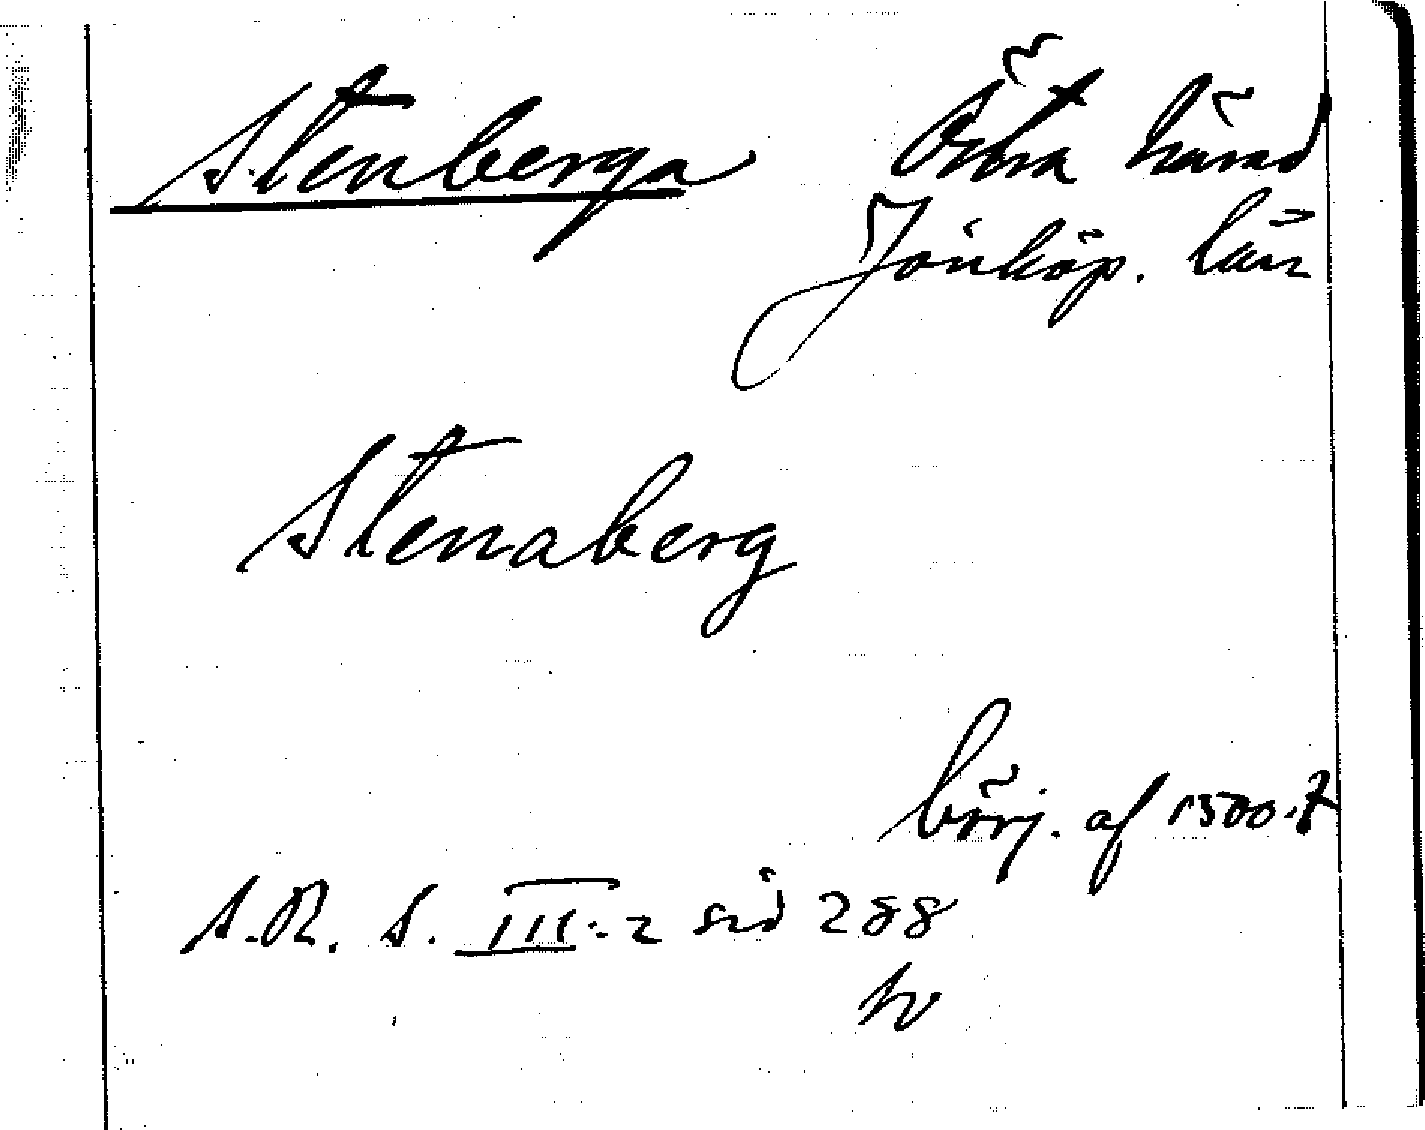 Stenberga Östra härad
Jönköp. län
Stenaberg
börj. af 1500.t
S.R. S. III:2 sid 288